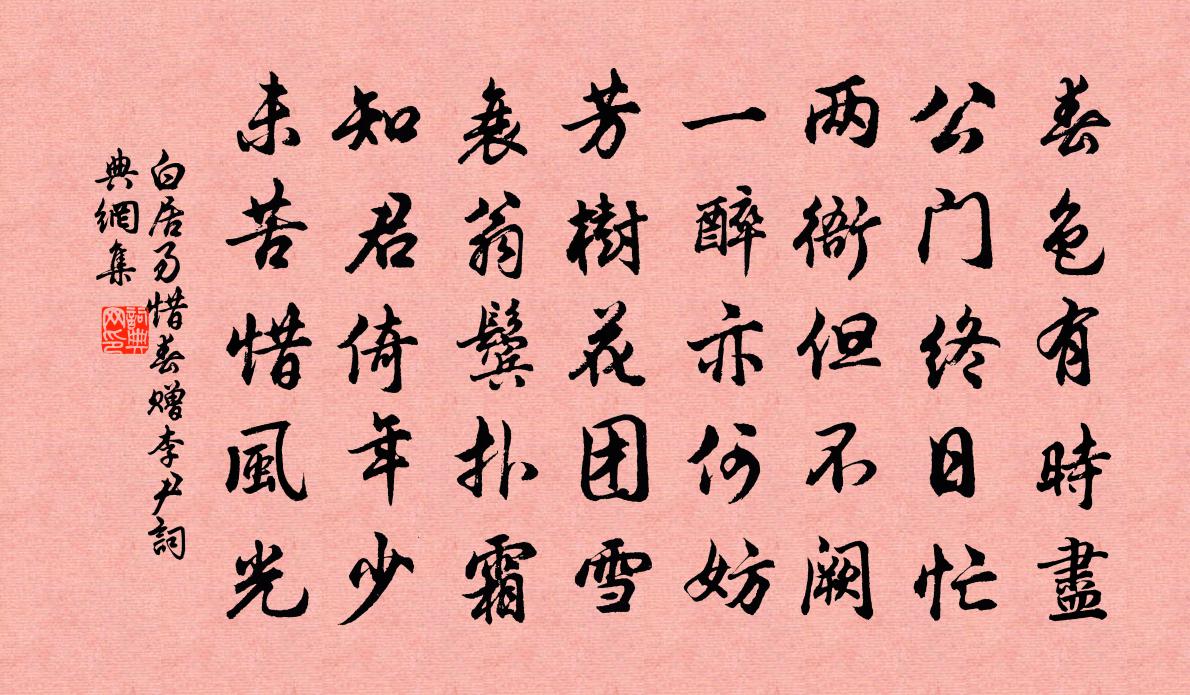 春色有時盡
公门終日忙
两衙但不阙
一醉亦何妨
芳樹花团雪
衰翁鬓扑霜
知君倚年少
未苦惜風光
白居易惜春赠李尹詞
典網集
詞典
网印